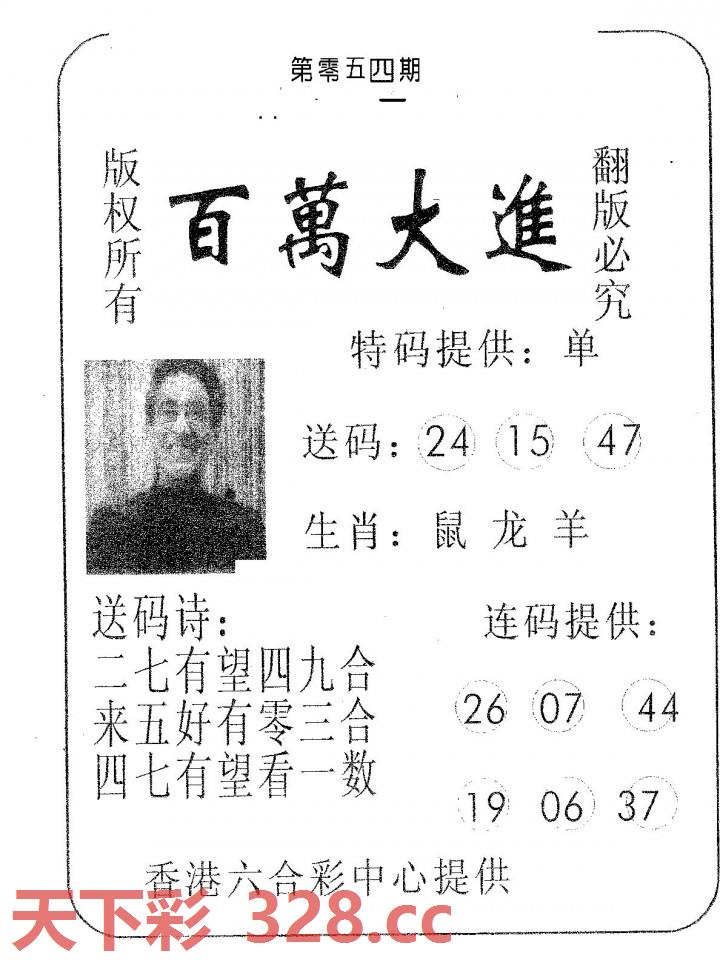 第零五四期
版权所有
百萬大進
翻版必究
特码提供：单
送码：24 15 47
生肖：鼠 龙 羊
送码诗：
二七有望四九合
来五好有零三合
四七有望看一数
连码提供：
26 07 44
19 06 37
香港六合彩中心提供
天下彩 328.cc